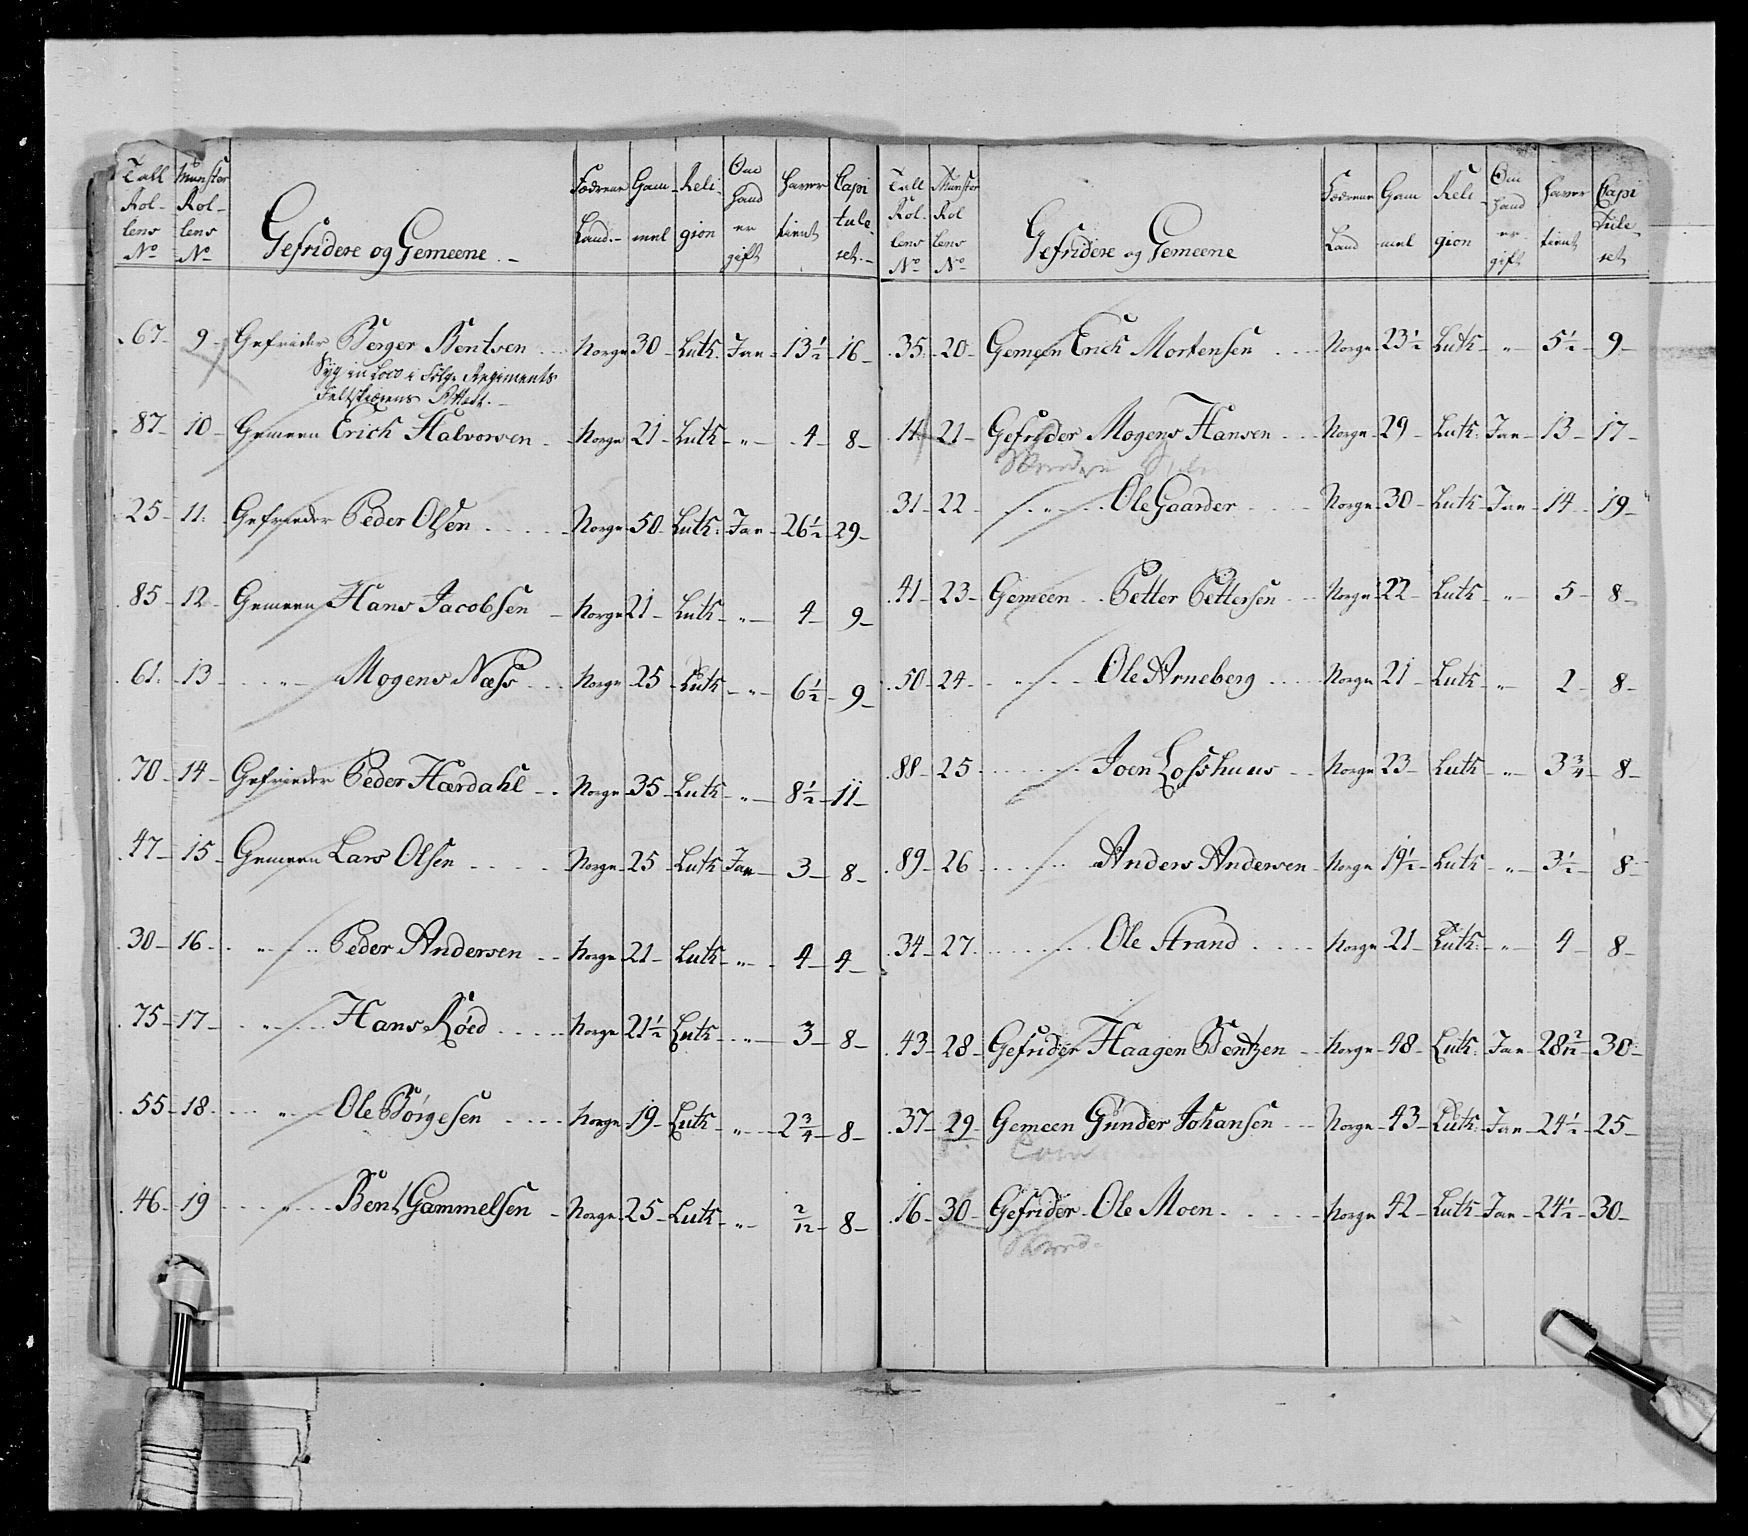 Tall Rol- lens No | Munster Rol- lens No | Gefridere og Gemeene. | Fædrene Land. | Gam- mel | Reli- gion | Om hand er gift | haver tient | Capi tule- ret.
67 - 9 - Gefrieder Berger Bentsen - Norge - 30 - Luth. - Jae - 13 1/2 - 16
Syg in Loco i Følge Regiments
Feltskierens Attest.
87 - 10 - Gemeen Erich Halvorsen - Norge - 21 - Luth - " - 4 - 8
25 - 11 - Gefrieder Peder Olsen - Norge - 50 - Luth: - Jae - 26 1/2 - 29
85 - 12 - Gemeen Hans Jacobsen - Norge 21 - Luth - " - 4 - 9
61 - 13 - " - Mogens Næss - Norge - 25 - Luth - " - 6 1/2 - 9
70 - 14 - Gefrieder Peder Hærdahl - Norge - 35 - Luth - " - 8 1/2 - 11
47 - 15 - Gemeen Lars Olsen - Norge - 25 - Luth Jae - 3 - 8
30 - 16 - " - Peder Andersen - Norge - 21 - Luth - " - 4 - 4
75 - 17 - " - Hans Röed - Norge 21 1/2 Luth - " - 3 - 8
55 - 18 - " - Ole Börgesen - Norge - 19 - Luth - " - 2 3/4 - 8
46 - 19 - " - Bent Gammelsen - Norge - 25 - Luth - " - 2/12 - 8
Tall Rol- lens No | Münster Rol lens No | Gefridere og Gemeene | Fædrene Land | Gam mel | Reli gion | Om hand er gift | haver tient | Capi tule- ret
35 - 20 - Gemeen Erich Mortensen - Norge - 23 1/2 Luth - " - 5 1/2 - 9
14 - 21 - Gefrider Mogens Hansen - Norge - 29 - Luth: Jae - 13 - 17
31 - 22 - " - Ole Gaarder - Norge - 30 - Luth Jae - 14 - 19
41 - 23 - Gemeen Petter Pettersen - Norge - 22 - Luth - " - 5 - 8
50 - 24 - " - Ole Arneberg - Norge - 21 - Luth - " - 2 - 8
88 - 25 - Joen Losshuus - Norge - 23 - Luth - " - 3 3/4 - 8
89 - 26 - Anders Andersen - Norge - 19 1/2 - Luth - " - 3 1/2 - 8
34 - 27 - Ole Strand - Norge - 21 - Luth: - " - 4 - 8
43 - 28 - Gefrider Haagen Bentzen - Norge - 48 - Luth: Jae - 28 2/12 - 30
37 - 29 - Gemeen Günder Johansen - Norge - 43 - Luth: Jae - 24 1/2 - 25
16 - 30 - Gefrider Ole Moen - Norge - 42 - Luth Jae - 24 1/2 - 30